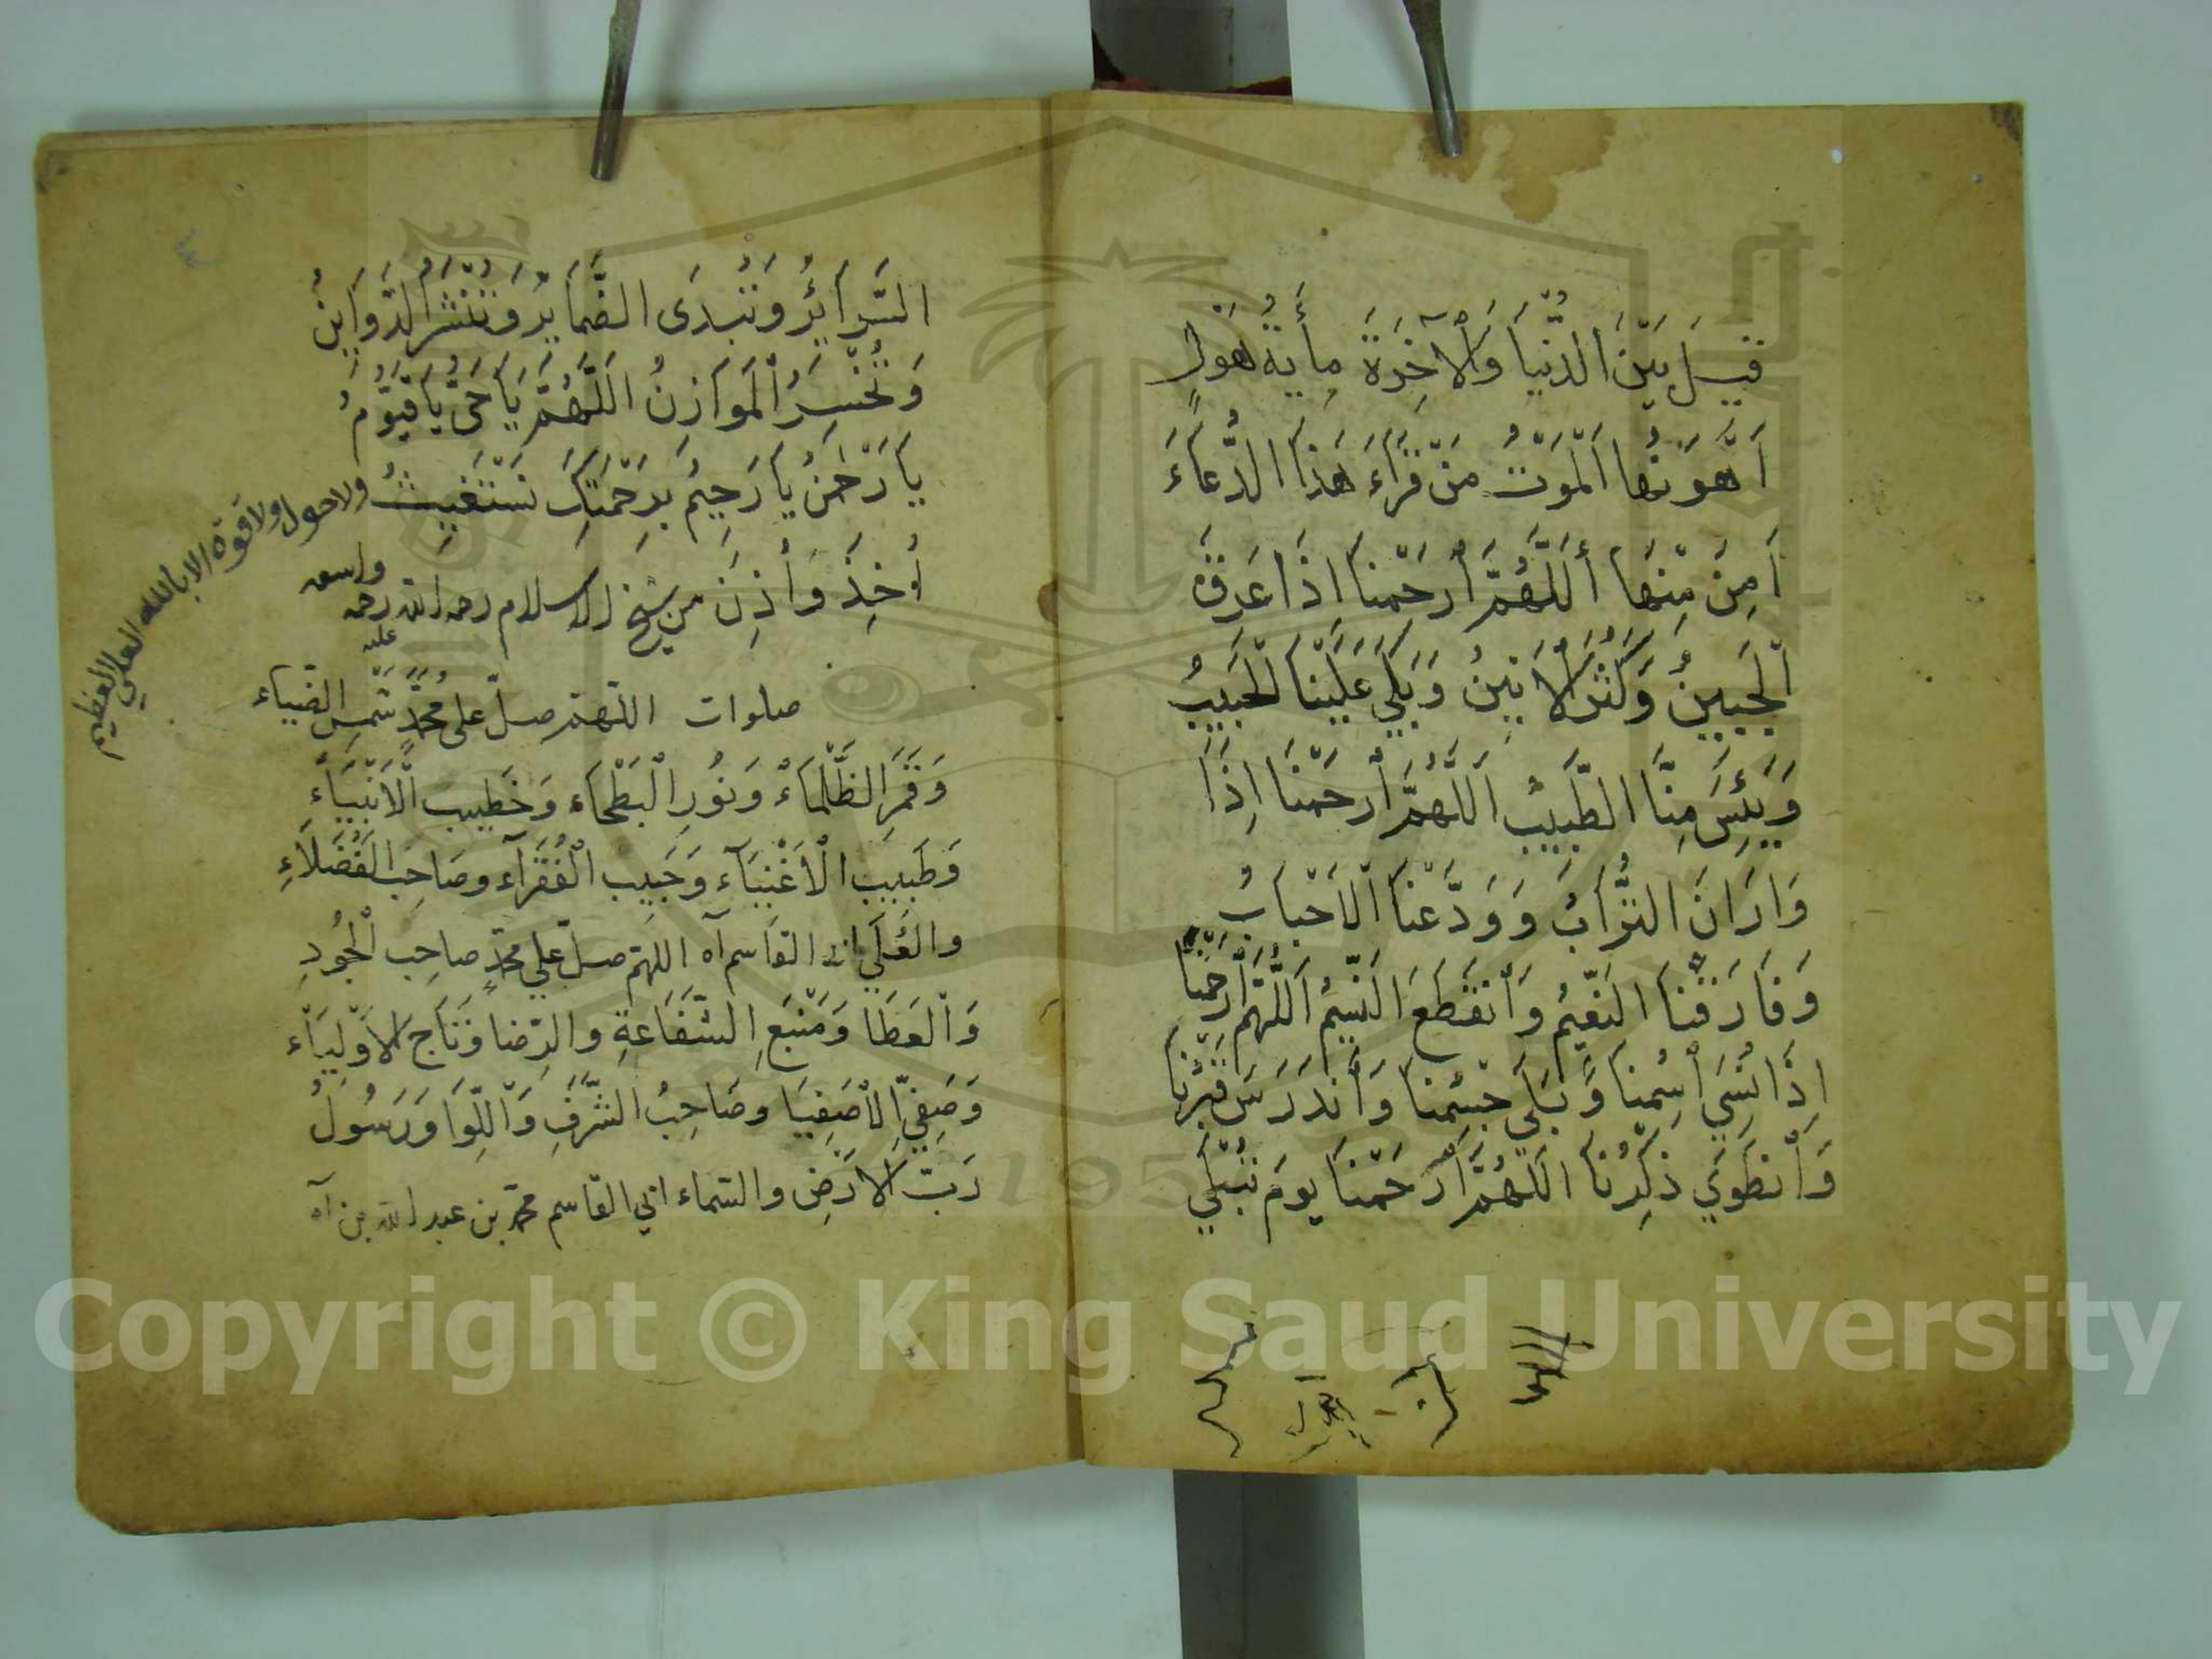 قيل بَيْنَ الدُّنْيَا وَالْآخِرَةِ مِأيَةُ هَوْلٍ
اَهْوَنُهَا اَلْمَوْتُ مَنْ قَرَاءَ هَذَا الدُّعَاءَ
اَمِنَ مِنْهَا اَللَّهُمَّ اَرْحَمْنَا اذَا عَرِقَ
الْجَبِينُ وَكَثُرَ الْاَنِينُ وَبَكَي عَلَيْنَا الْحَبِيبُ
وَيَئِسَ مِنَّا الطَّبِيبُ اَللَّهُمَّ اَرْحَمْنَا اِذَا
وَارَانَ التُّرَابُ وَوَدَّعْنَا الْاَحْبَابُ
وَفَارَقَنَا النَّعِيْمُ وَاَنْقَطَعَ النَّسِيْمُ اَللَّهُمَّ اَرْحَمْنَا
اِذَا نُسِيَ اسْمُنَا وَبَلِيَ جِسْمُنَا وَاَنْدَرَسَ قَبْرُنَا
وَاَنْطَوَي ذِكْرُنَا اَللَّهُمَّ اَرْحَمْنَا يَومَ تُبْلَي
٤
السَّرَائِرُ وَتُبْدَى الضَّمَايِرُ وَتُنْشَرُ الدَّوَاوِينُ
وَتُخْسَرُ الْمَوَازِنُ اَللَّهُمَّ يَا حَيُّ يَا قَيُّومُ
يَا رَحْمَنُ يَا رَحِيمُ بِرَحْمَتِكَ نَسْتَغِيثُ
ولا حول ولا قوة الا بالله العلي العظيم
اُخِذَ وَاُذِنَ من شيخ الاسلام رحمه الله رحمه
واسعه
عليه
صلوات اللهم صل على محمد شَمْسِ الضياء
وَقَمَرِ الظَّلْمَاءْ وَنُورِ الْبَطْحَاء وَخَطِيبِ الْاَنْبِيَاءِ
وَطَبِيبِ الْاَغْنِيَآء وَحَبِيبِ الْفُقَرَآء وصَاحِبِ الْفُضَلَاءِ
والْعُلَي القاسم آه اللهم صلّ علي محمدٍ صاحِب الْجُودِ
وَالْعَطَا وَمَنْبَعِ الشَّفَاعَةِ والرِّضا وَتَاجِ الْاَوْلِيَاْء
وَصَفِيِّ الْاَصْفِيَا وصَاحِبُ الشَّرَفِ وَاللِّوَا وَرَسُولُ
رَبِّ الْاَرَضِ والسَّماء ابي القاسم محمد بن عبد الله بن آه
1957
Copyright © King Saud University